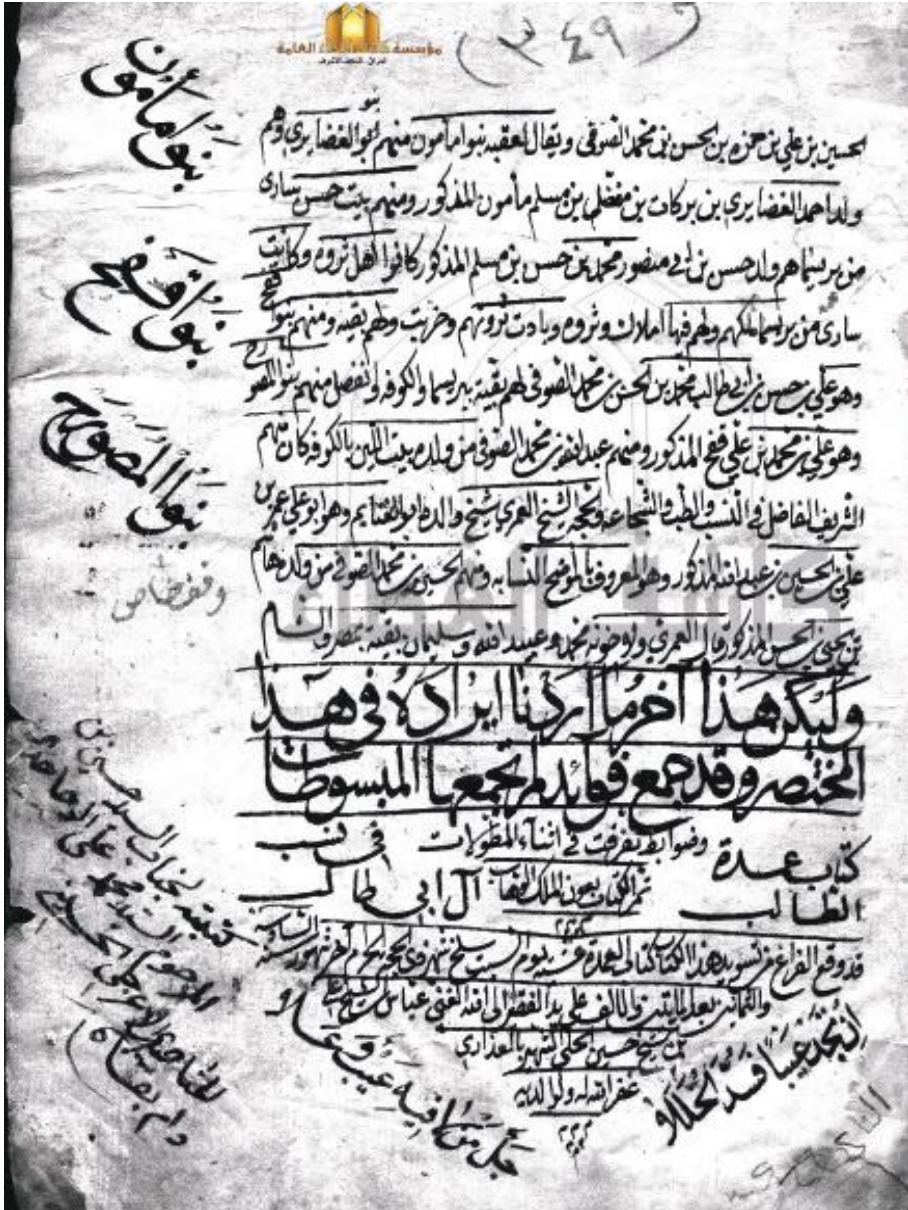 مؤسسة كاشف الغطاء العامة
العراق - النجف الاشرف
(٢٤٩)
الحسين بن علي بن حمزه بن الحسن بن محمد الصوفي ويقال لعقبه بنوا مامون منهم بنو الغضايري وهم
ولد احمد الغضايري بن بركات بن مفضل بن مسلم مأمون المذكور ومنهم بيت حسن سارى
من بريسما هم ولد حسن بن ابي منصور محمد بن حسن بن مسلم المذكور كانوا اهل ثروه وكانت
سارى من بريسما لملكهم ولهم فيها املاك وثروه وبادت ثروتهم وخربت ولهم بقيه ومنهم بنو قفح
وهو علي بن حسن بن ابي طالب محمد بن الحسن بن محمد الصوفي لهم بقية ببريسما والكوفه وانفصل منهم بنو المصورح
وهو علي بن محمد بن علي قفح المذكور ومنهم عبد الله بن محمد الصوفي من ولده بيت اللبن بالكوفه كان منهم
الشريف الفاضل في النسب والطب والشجاعه والحجه الشيخ العمري شيخ والده ابو الغنايم وهو ابو علي عمر بن
علي بن الحسين بن عبد الله المذكور وهو المعروف بالموضح النسابه ومنهم الحسين بن محمد الصوفي من ولده هاشم
بن يحيى بن الحسن المذكور قال العمري ولاخوته محمد وعبيد الله وسليمان بقية بمصر والشام
وَليَكُن هذا آخر ما اردنا ايراده في هذا
المختصر وقد جمع فوايد لم تجمعها المبسوطات
وضوابط تفرقت في اثناء المطولات
كتاب عمدة الطالب في نسب آل ابي طالب
تم الكتاب بعون الملك الوهاب
قد وقع الفراغ من تسويد هذا الكتاب كتاب العمدة عشيه يوم السبت سلخ شهر ذي الحجه الحرام آخر شهور السنه السادسه
والثمانين بعد المايتين والالف على يد الفقير الى الله الغني عباس
بن شيخ حسين الحلي الشهير بالعذاري
غفر الله له ولوالديه
ان تجد عيبا فسد الخللا
جل من لا فيه عيب وعلا
بنو مأمون
بنو قفح
بنو المصورح
كتبته لجناب السيد حسين بن
المرحوم السيد محمد علي
الحسيني